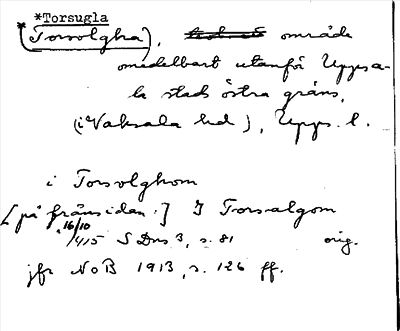 *Torsugla
*(Torsolgha), område
omedelbart utanför Uppsa-
la stads östra gräns,
(i Vaksala hd), Upps. l.
i Torsolghom
[på frånsidan:] I Torsalgom
16/10 1415 SDns 3, s. 81 orig.
jfr NoB 1913, s. 126 ff.